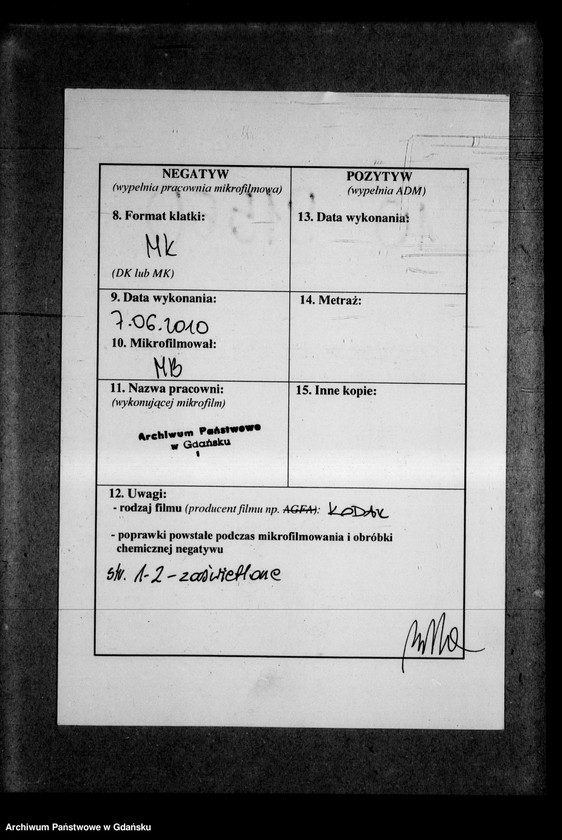 NEGATYW
(wypełnia pracownia mikrofilmowa)
8. Format klatki:
MK
(DK lub MK)
9. Data wykonania:
7.06.2010
10. Mikrofilmował:
MB
11. Nazwa pracowni:
(wykonującej mikrofilm)
Archiwum Państwowe
w Gdańsku
1
POZYTYW
(wypełnia ADM)
13. Data wykonania:
14. Metraż:
15. Inne kopie:
12. Uwagi:
- rodzaj filmu (producent filmu np. AGFA): KODAK
- poprawki powstałe podczas mikrofilmowania i obróbki
chemicznej negatywu
str. 1-2 - zaświetlone
Archiwum Państwowe w Gdańsku